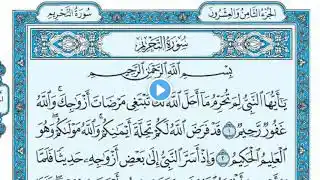 الجزء الثامن والعشرون
سورة التحريم
سُورَةُ التَّحْرِيمِ
بِسْمِ اللَّهِ الرَّحْمَٰنِ الرَّحِيمِ
يَا أَيُّهَا النَّبِيُّ لِمَ تُحَرِّمُ مَا أَحَلَّ اللَّهُ لَكَ تَبْتَغِي مَرْضَاتَ أَزْوَاجِكَ وَاللَّهُ
غَفُورٌ رَحِيمٌ ١ قَدْ فَرَضَ اللَّهُ لَكُمْ تَحِلَّةَ أَيْمَانِكُمْ وَاللَّهُ مَوْلَاكُمْ وَهُوَ
الْعَلِيمُ الْحَكِيمُ ٢ وَإِذْ أَسَرَّ النَّبِيُّ إِلَىٰ بَعْضِ أَزْوَاجِهِ حَدِيثًا فَلَمَّا